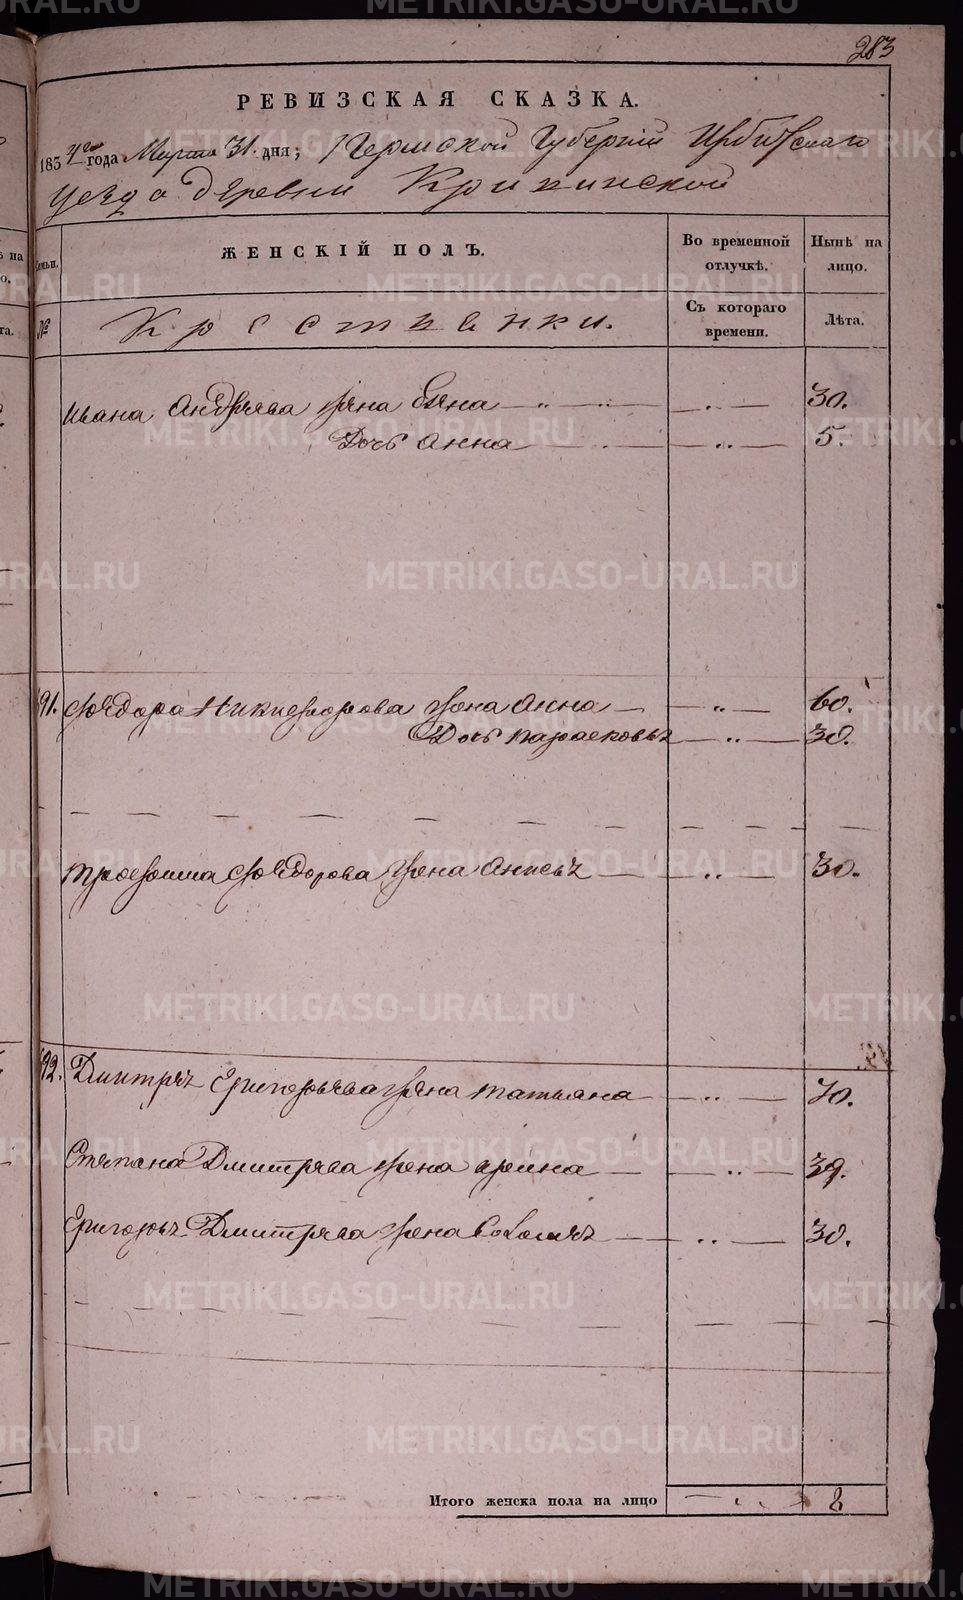 283
РЕВИЗСКАЯ СКАЗКА.
1834го года Марта 31. дня; Пермской Губернии Ирбитскаго
уезда деревни Крикинской
ЖЕНСКІЙ ПОЛЪ.
Во временной отлучкѣ.
Нынѣ на лицо.
Семьи.
№
Крестьянки.
Съ котораго времени.
Лѣта.
Ивана Андреева жена Елена — „ — — „ — 30.
Дочь Анна — „ — 5.
91. Федора Никифорова жена Анна — „ — 60.
Дочь Парасковья — „ — 30.
Трофима Федорова жена Анисья — „ — 30.
92. Дмитрея Григорьева жена Татьяна — „ — 70.
Степана Дмитрева жена Ирина — „ — 39.
Григорья Дмитрева жена Соломея — „ — 30.
Итого женска пола на лицо — „ — 8
METRIKI.GASO-URAL.RU